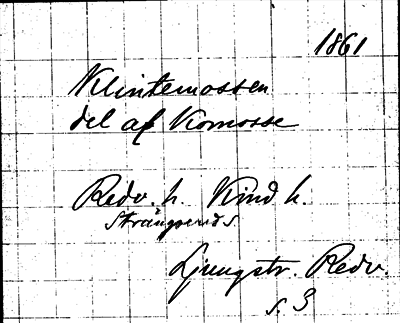 1861
Klintemossen
del af Komosse
Redv. h. Kind h.
Strängsereds.
Ljungstr. Redv.
s. 3